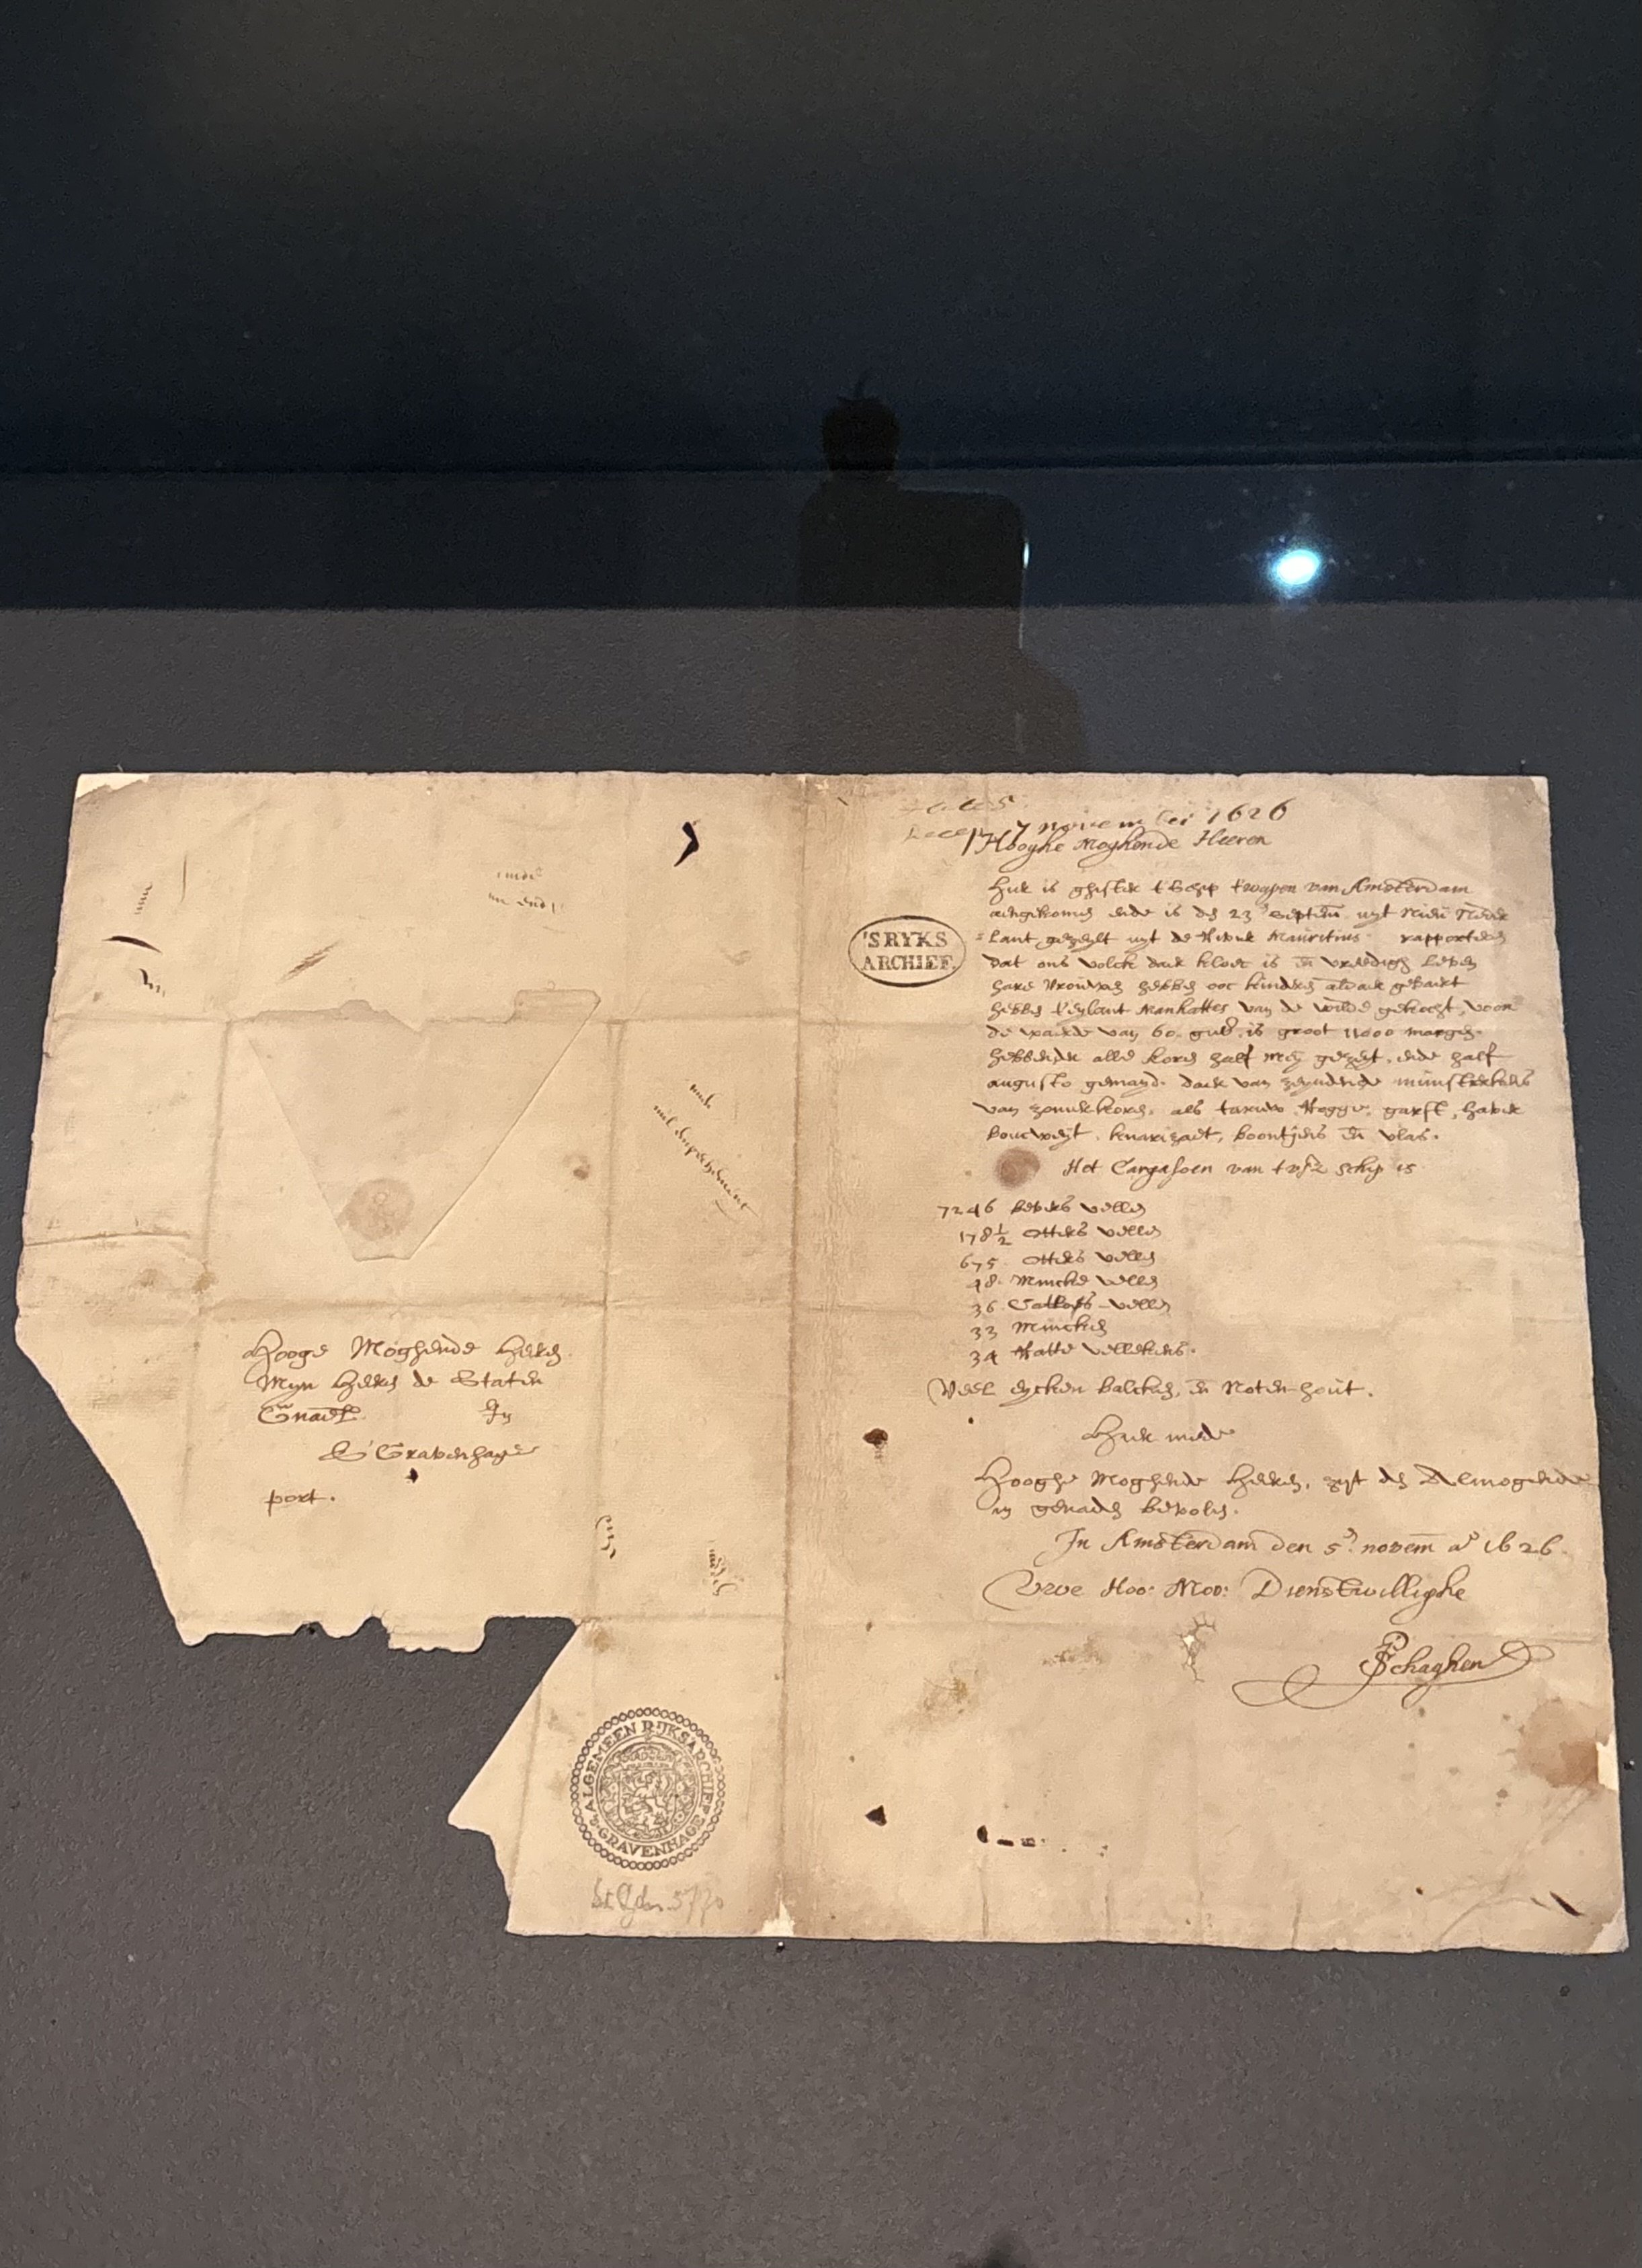 7 november 1626
Hooghe Moghende Heeren
Hier is ghister t'Schip t'wapen van Amsterdam
aengekomen ende is den 23en septem. uyt Nieu Neder
lant gezeylt uyt de Rivier Mauritius. rapporteren
dat ons volck daer kloec is en vreedigh leven
hare Vrouwen hebben ooc kinderen aldaer gebaert
hebben t'eylant Manhattes van de wilde gekocht, voor
de waerde van 60. guld. is groot 11000 morgen.
hebbende alle koren half mey gezeyt, ende half
augusto gemayd. Daer van zeyndende munsterkens
van zomerkoren, als tarruw, Rogge, garst, haver
boucweyt, knarizaet, boontjens en vlas.
Het Cargasoen van tvsz schip is
7246 bevers vellen
178½ otters vellen
675 otters vellen
48. Mincke vellen
36 Catloes vellen
33 Mincken
34 Ratte vellekens.
Veel eycken balcken, en Noten-hout.
Hier mede
Hooghe Moghende Heeren, zyt den Almogende
in genaden bevolen.
In Amsterdam den 5en novem ao 1626.
Uwe Hoo: Moo: Dienstwillighe
P Schaghen
'SRYKS
ARCHIEF.
Hooge Moghende Heeren
Myn Heeren de Staten
Gnael. In
S'Gravenhage
port.
ALGEMEEN RIJKSARCHIEF
'S-GRAVENHAGE
5770